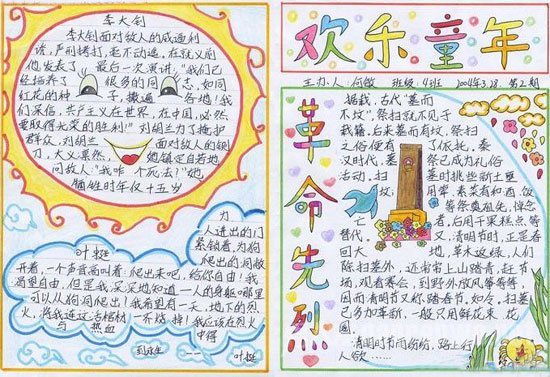 李大钊
李大钊面对敌人的威逼利
诱,严刑拷打,毫不动遥,在就义前
他发表了最后一次演讲,"我们已
经培养了很多的同志,如同
红花的种子,撒遍各地!我
们深信,共产主义在世界,在中国,必然
要取得光荣的胜利!"刘胡兰为了掩护
群众,刘胡兰面对敌人的铡
刀,大义凛然,她镇定自若地
问敌人:"我咋个死法?"她
牺牲时年仅十五岁
叶挺
为
人进出的门
紧锁着,为狗
爬出的洞敞
开着,一个声音高叫着:爬出来吧,给你自由!我
渴望自由,但是我深深地知道——人的身躯哪里
可以从狗洞爬出!我希望有一天,地下的烈
火,将我连这活棺材一齐烧掉!我应该在烈火
与热血中得
到永生 —— 叶挺
欢乐童年
主办人:何敏 班级:4班 2004年3.28.第2期
革命先烈
据载,古代"墓而
不坟",祭扫就不见于
载籍.后来墓而有坟,祭扫
之俗便有了依托.秦
汉时代,墓祭已成为礼俗
活动,扫墓时挑些新土
坟用窜,素菜有和酒、饭
等祭奠祖先,悼念
亡者,后用干果糕点等
替代.又,清明时,正是春
回大地,草木返绿,人们
除扫墓外,还常常上山踏青,赶节
场,观看赛会,到野外放风筝等等,
因而清明节又称踏春节,如今,扫墓
已多加革新,一般只用鲜花束、花
圈.
清明时节雨纷纷,路上行
人欲……